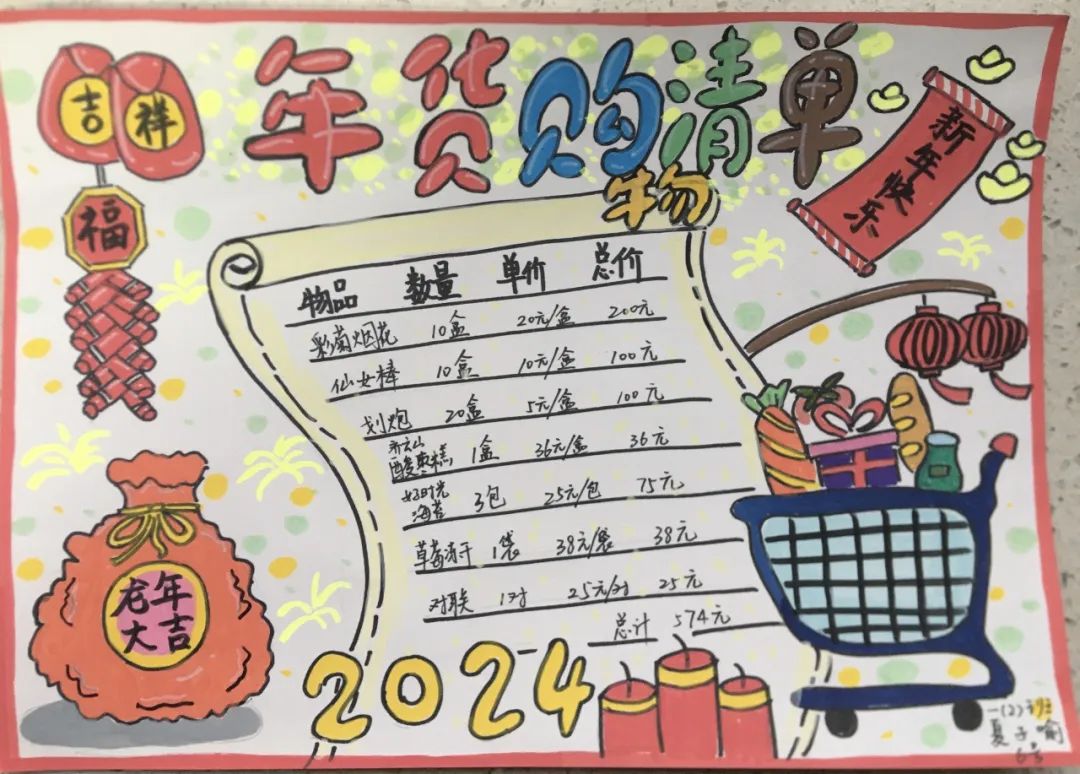 年货购物清单
吉祥
福
新年快乐
物品 数量 单价 总价
彩菊烟花 10盒 20元/盒 200元
仙女棒 10盒 10元/盒 100元
划炮 20盒 5元/盒 100元
齐云山
酸枣糕 1盒 36元/盒 36元
好时光
海苔 3包 25元/包 75元
草莓冻干 1袋 38元/袋 38元
对联 1对 25元/对 25元
总计 574元
龙年
大吉
2024
一(2)班
夏子喻